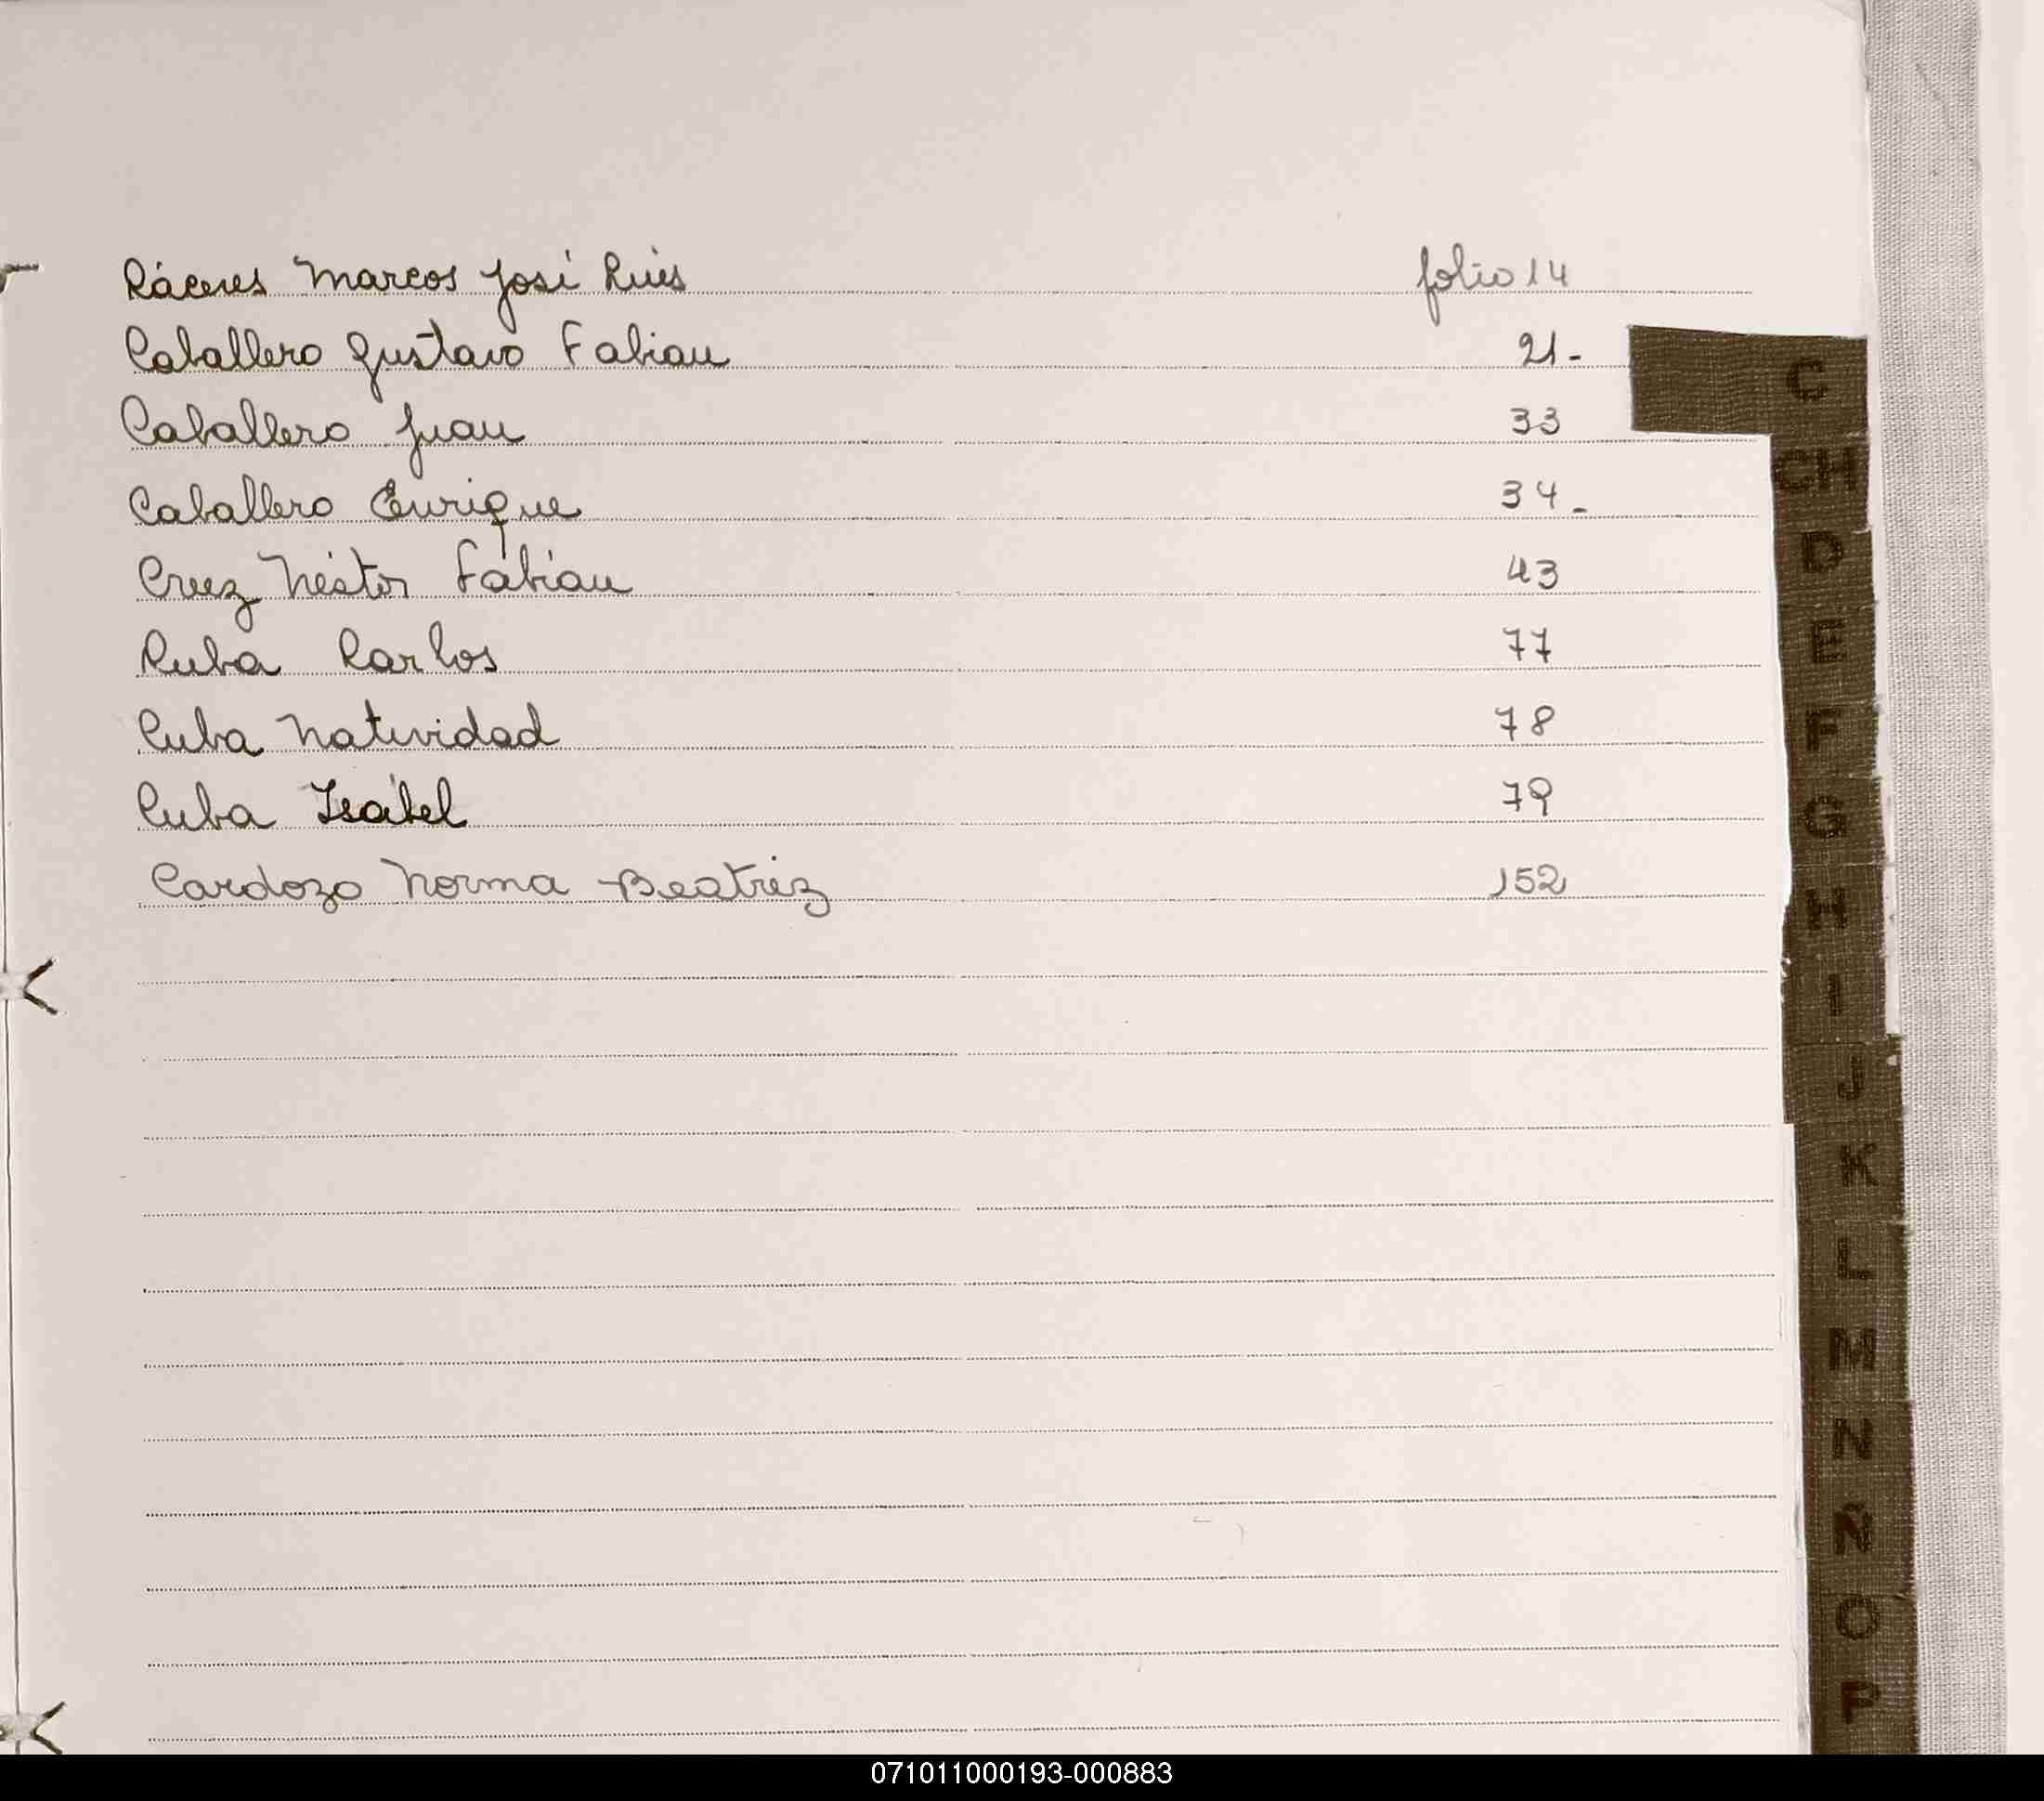 Cáceres Marcos José Luis folio 14
Caballero Gustavo Fabian 21-
Caballero Juan 33
Caballero Enrique 34-
Cruz Néstor Fabian 43
Cuba Carlos 77
Cuba Natividad 78
Cuba Isabel 79
Cardozo Norma Beatriz 152
C
CH
D
E
F
G
H
I
J
K
L
M
N
Ñ
O
P
071011000193-000883